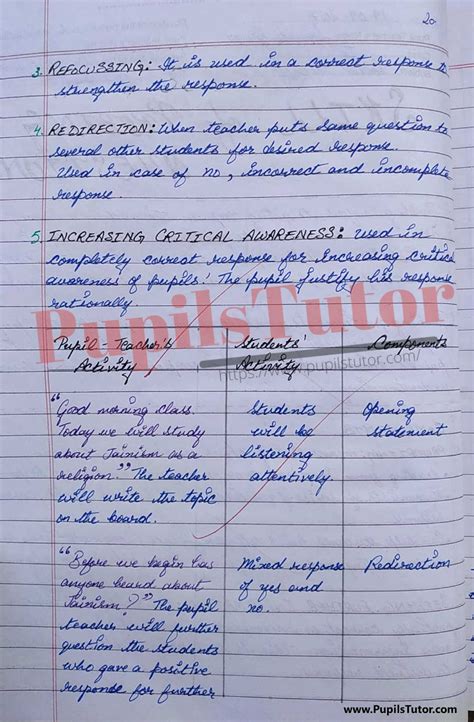 20
3. REFOCUSSING: It is used in a correct response to
strengthen the response.
4. REDIRECTION: When teacher puts same question to
several other students for desired response.
Used in case of no, incorrect and incomplete
response.
5. INCREASING CRITICAL AWARENESS: Used in
completely correct response for increasing critical
awareness of pupils! The pupil justify his response
rationally.
PupilsTutor
https://www.pupilstutor.com/
Pupil-Teacher's Activity
Students' Activity
Components
"Good morning class.
Today we will study
about Jainism as a
religion." The teacher
will write the topic
on the board.
Students
will be
listening
attentively.
Opening
statement
"Before we begin has
anyone heard about
Jainism?" The pupil
teacher will further
question the students
who gave a positive
response for further
Mixed response
of yes and
no.
Redirection
www.PupilsTutor.com